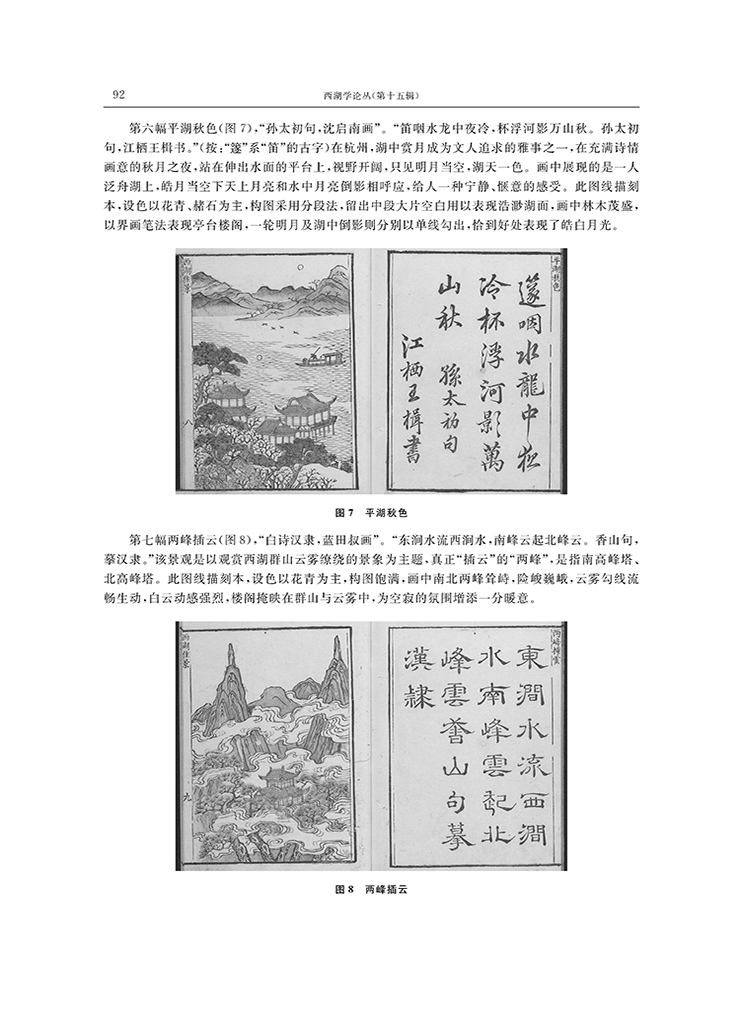 92
西湖学论丛(第十五辑)
第六幅平湖秋色(图 7),“孙太初句,沈启南画”。“笛咽水龙中夜冷,杯浮河影万山秋。孙太初
句,江栖王楫书。”(按:“篴”系“笛”的古字)在杭州,湖中赏月成为文人追求的雅事之一,在充满诗情
画意的秋月之夜,站在伸出水面的平台上,视野开阔,只见明月当空,湖天一色。画中展现的是一人
泛舟湖上,皓月当空下天上月亮和水中月亮倒影相呼应,给人一种宁静、惬意的感受。此图线描刻
本,设色以花青、赭石为主,构图采用分段法,留出中段大片空白用以表现浩渺湖面,画中林木茂盛,
以界画笔法表现亭台楼阁,一轮明月及湖中倒影则分别以单线勾出,恰到好处表现了皓白月光。
平湖秋色
篴咽水龍中夜
冷杯浮河影萬
山秋 孫太初句
江栖王楫書
西湖佳景
八
图 7 平湖秋色
第七幅两峰插云(图 8),“白诗汉隶,蓝田叔画”。“东涧水流西涧水,南峰云起北峰云。香山句,
摹汉隶。”该景观是以观赏西湖群山云雾缭绕的景象为主题,真正“插云”的“两峰”,是指南高峰塔、
北高峰塔。此图线描刻本,设色以花青为主,构图饱满,画中南北两峰耸峙,险峻巍峨,云雾勾线流
畅生动,白云动感强烈,楼阁掩映在群山与云雾中,为空寂的氛围增添一分暖意。
两峰插雲
東澗水流西澗
水南峰雲起北
峰雲香山句摹
漢隸
西湖佳景
九
图 8 两峰插云